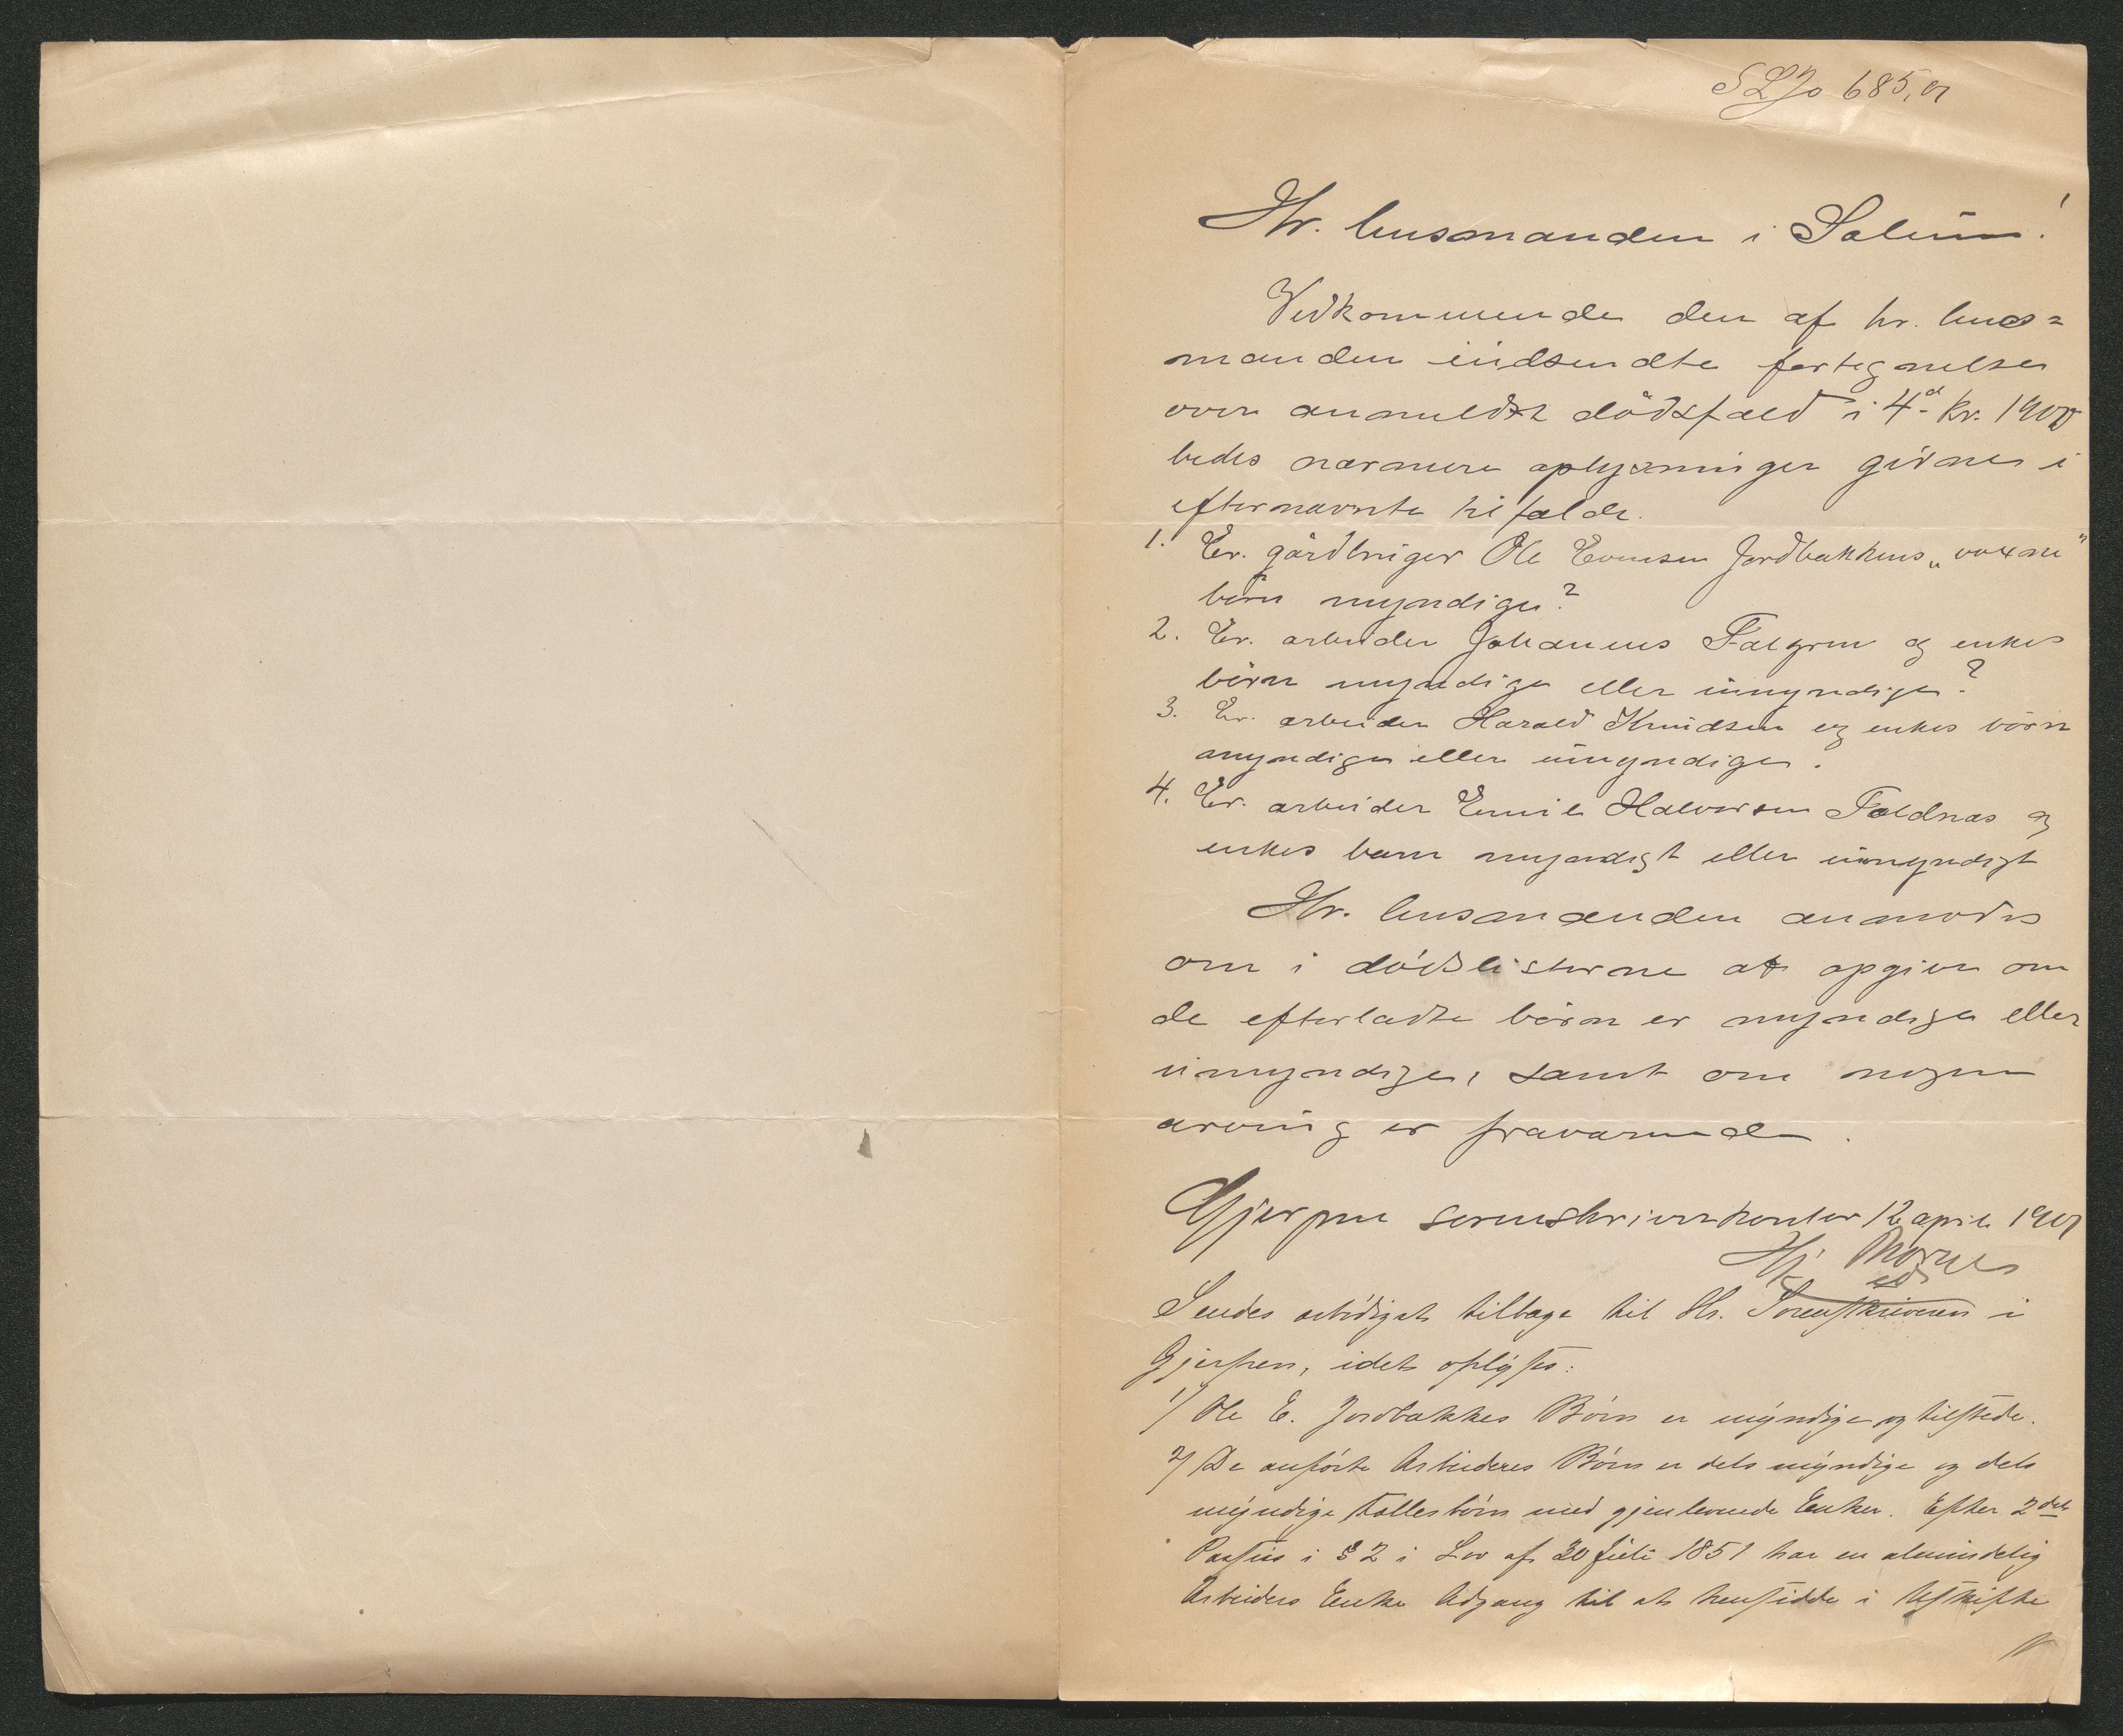 685,01
Hr. lensmanden i Solum!
Vedkommende den af hr. lens=
manden indsendte fortegnelse
over anmeldte dödsfald i 4d. kv. 1900
bedes nærmere oplysninger givne i
efternævnte tilfælde.
1. Er gårdbruger Ole Evensen Jordbakkens „voxne"
börn myndige?
2. Er arbeider Johannes Falgren og enkes
börn myndige eller umyndige?
3. Er arbeider Harald Knudsen og enkes börn
myndige eller umyndige.
4. Er arbeider Emil Halvorsen Foldnæs og
enkes barn myndigt eller umyndigt
Hr. lensmanden anmodes
om i dödslisterne at opgive om
de efterladte börn er myndige eller
umyndige, samt om nogen
arving er fraværende.
Gjerpen sorenskriverkontor 12 april 1901
Sendes ærbödigst tilbage til Hr. Sorenskriveren i
Gjerpen, idet oplyses:
1/ Ole E. Jordbakkes Börn er myndige og tilstede.
2/ De anförte Arbeideres Börn er dels myndige og dels
myndige Fællesbörn med gjenlevende Enker. Efter 2det
Passus i § 2 i Lov af 30 Juli 1851 har en almindelig
Arbeiders Enke Adgang til at hensidde i Uskifte